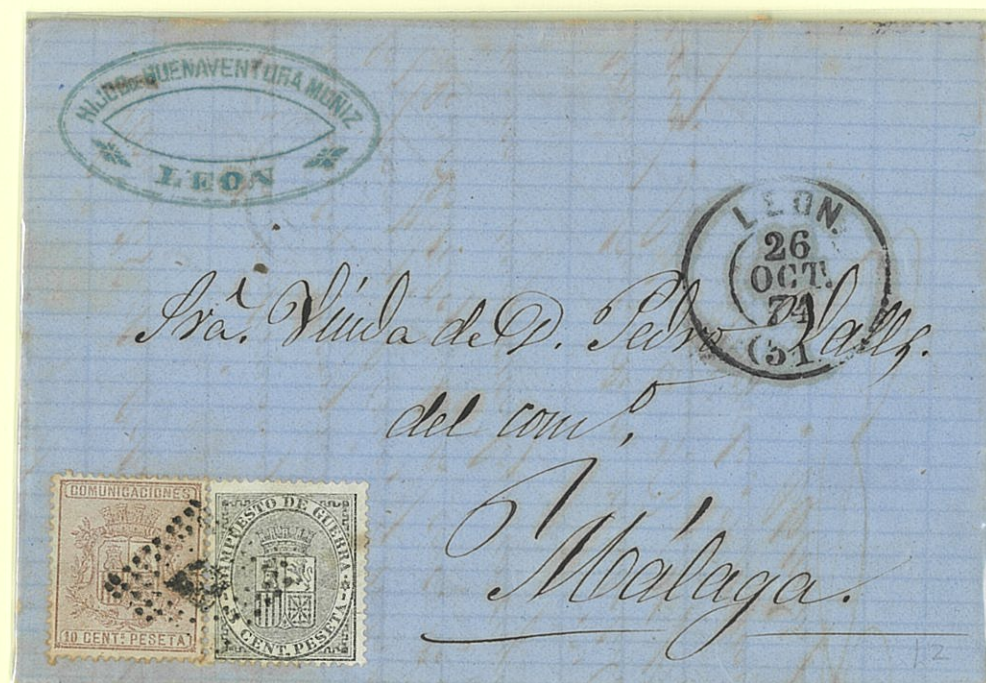 HIJOS DE BUENAVENTURA MUÑIZ
LEON
LEON.
26
OCT.
74
(51)
Sra. Viuda de D. Pedro Valls.
del como,
Málaga.
COMUNICACIONES
10 CENTS PESETA
IMPUESTO DE GUERRA
5 CENT. PESETA
12